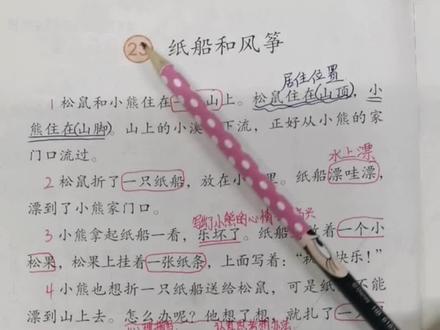 23 纸船和风筝
居住位置
1 松鼠和小熊住在一 山上。松鼠住在山顶,小
熊住在山脚。山上的小溪 下流,正好从小熊的家
门口流过。
水上漂
2 松鼠折了一只纸船,放在小 里。纸船漂哇漂,
漂到了小熊家门口。
小熊的心情
3 小熊拿起纸船一看,乐坏了。纸船 着一个小
松果,松果上挂着一张纸条,上面写着:“ 快乐!”
4 小熊也想折一只纸船送给松鼠,可是纸 不能
漂到山上去。怎么办呢?他想了想,就扎了一